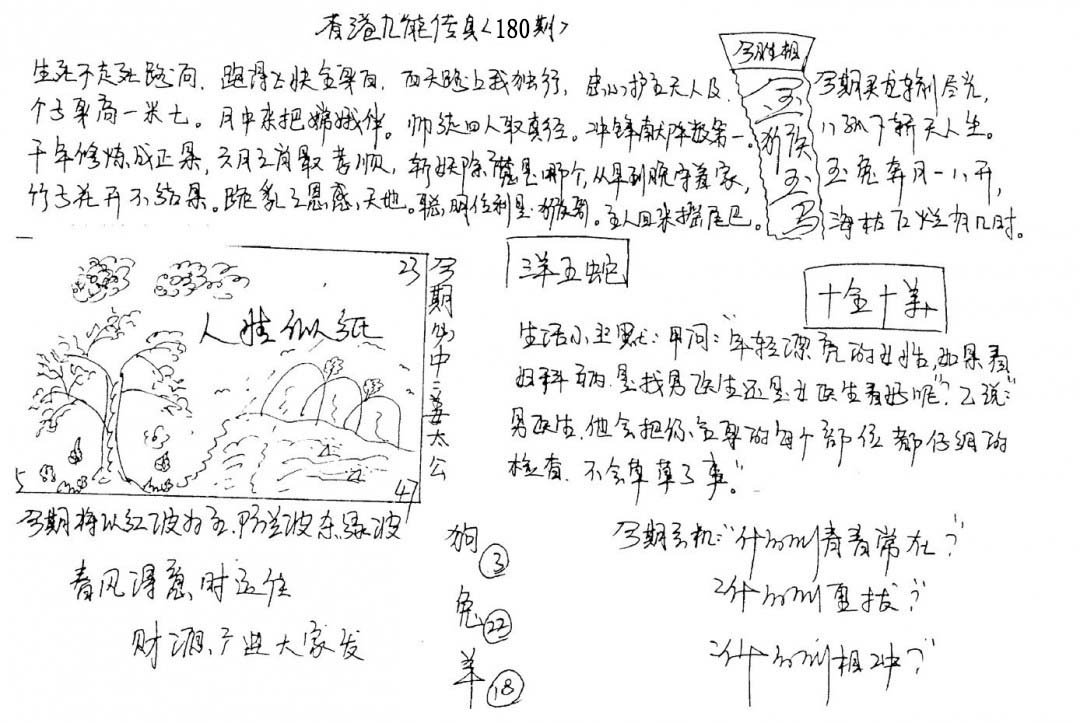 香港九能传真<180期>
生死不走死路向,跑得上快全身白,西天路上我独行,忠心护主无人及,
个子身高一米七。月中来把嫦娥伴。师徒四人取真经。冲锋献阵数第一。
千年修炼成正果,六月三肖最孝顺,斩妖除魔是哪个,从早到晚守着家,
竹子花开不结果。跪乳之恩感天地。聪明伶利是猴哥。主人回来摇尾巴。
今胜相
玉
猴
玉
马
今期
玉兔奔月一八开,
海枯石烂有几时。
23
人性似纸
5
47
今期必中三姜太公
三羊五蛇
十全十美
生活小幽默:甲问:"年轻漂亮的女姓,如果看
妇科病.是找男医生还是女医生看好呢"?乙说:"
男医生,他会把你全身的每个部位都仔细的
检查.不会草草了事。"
今期将以红波为主.防兰波杀绿波
春风得意时运佳
财源产进大家发
狗③
兔㉒
羊⑱
今期玄机:"什么叫青春常在?"
"什么叫重拔?"
"什么叫相冲?"